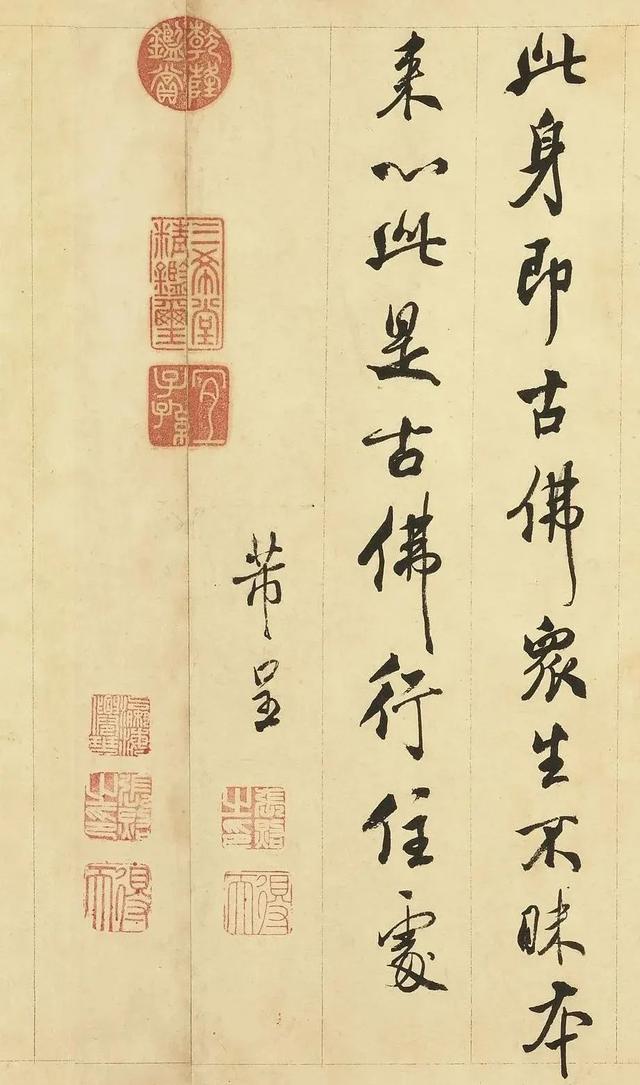 此身即古佛眾生不昧本
来心此是古佛行住處
芾呈
乾隆鑑賞
三希堂精鑑璽
宜子孫